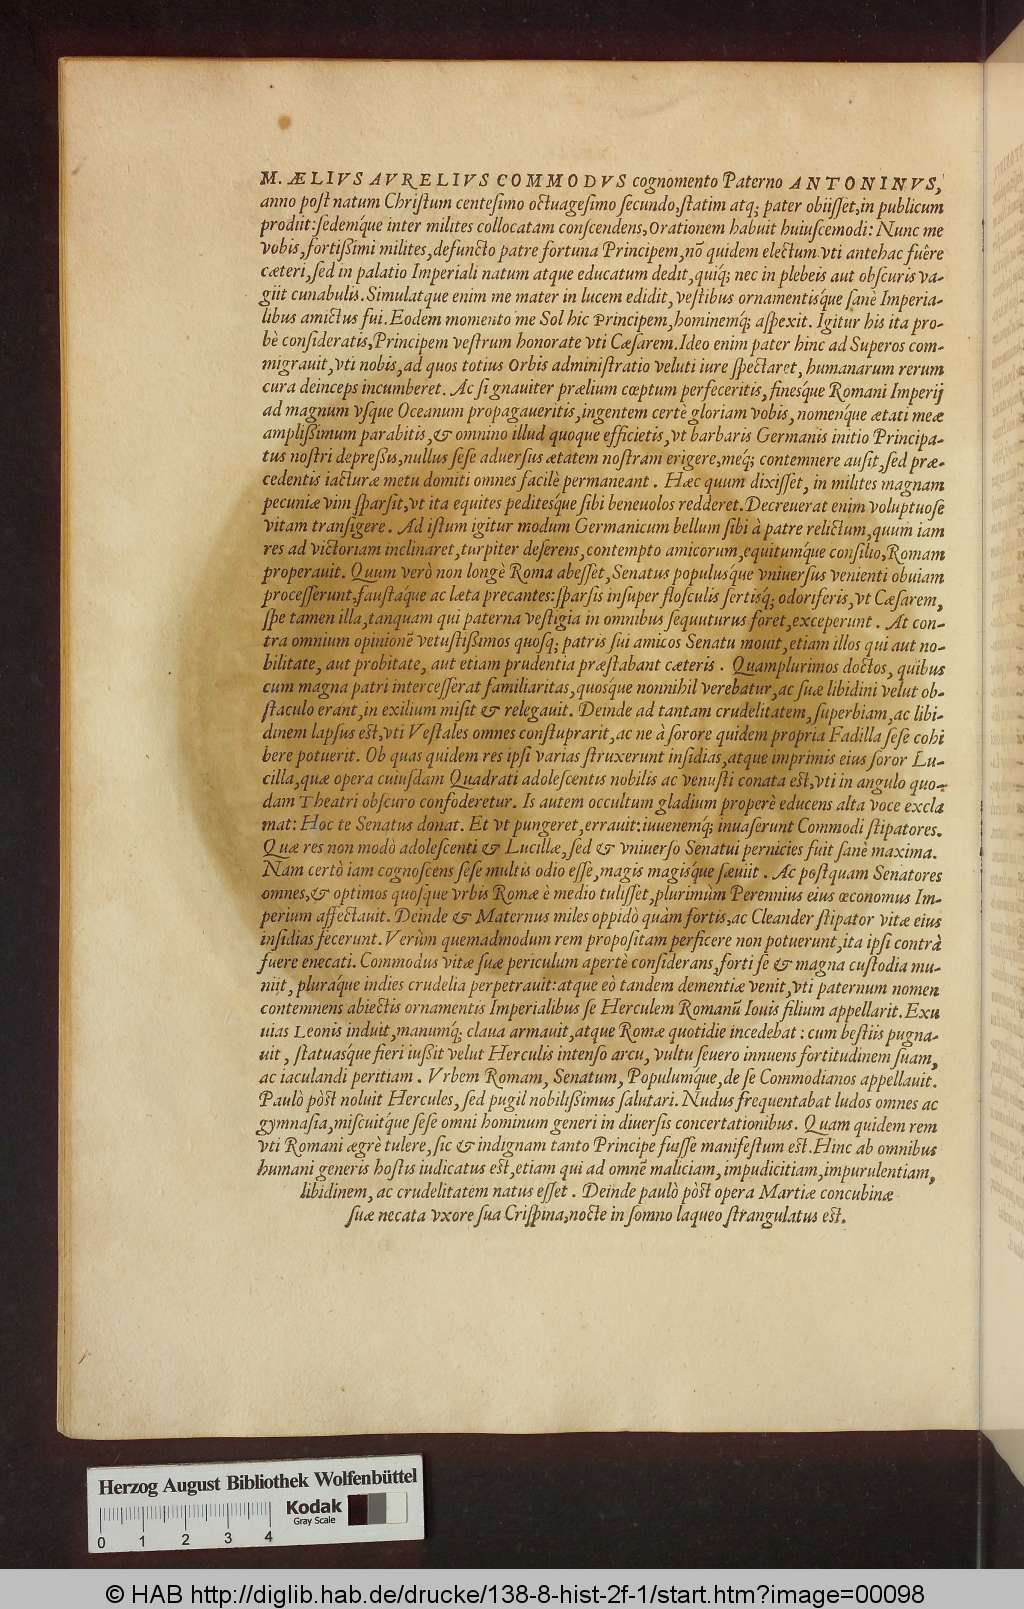 M. ÆLIVS AVRELIVS COMMODVS cognomento Paterno ANTONINVS,
anno poſt natum Chriſtum centeſimo octuageſimo ſecundo, ſtatim atq; pater obiiſſet, in publicum
prodiit: ſedemq́ue inter milites collocatam conſcendens, Orationem habuit huiuſcemodi: Nunc me
vobis, fortißimi milites, defuncto patre fortuna Principem, nõ quidem electum vti antehac fuêre
cæteri, ſed in palatio Imperiali natum atque educatum dedit, quiq́; nec in plebeis aut obſcuris va-
giit cunabulis. Simulatque enim me mater in lucem edidit, veſtibus ornamentisq́ue ſanè Imperia-
libus amictus fui. Eodem momento me Sol hic Principem, hominemq́; aſpexit. Igitur his ita pro-
bè conſideratis, Principem veſtrum honorate vti Cæſarem. Ideo enim pater hinc ad Superos com-
migrauit, vti nobis, ad quos totius Orbis adminiſtratio veluti iure ſpectaret, humanarum rerum
cura deinceps incumberet. Ac ſi gnauiter prælium cœptum perfeceritis, finesq́ue Romani Imperij
ad magnum vſque Oceanum propagaueritis, ingentem certè gloriam vobis, nomenq́ue ætati meæ
amplißimum parabitis, & omnino illud quoque efficietis, vt barbaris Germanis initio Principa-
tus noſtri depreßis, nullus ſeſe aduerſus ætatem noſtram erigere, meq́; contemnere auſit, ſed præ-
cedentis iacturæ metu domiti omnes facilè permaneant. Hæc quum dixiſſet, in milites magnam
pecuniæ vim ſparſit, vt ita equites peditesq́ue ſibi beneuolos redderet. Decreuerat enim voluptuoſe
vitam tranſigere. Ad iſtum igitur modum Germanicum bellum ſibi à patre relictum, quum iam
res ad victoriam inclinaret, turpiter deſerens, contempto amicorum, equitumq́ue conſilio, Romam
properauit. Quum verò non longè Roma abeſſet, Senatus populusque vniuerſus venienti obuiam
proceſſerunt, fauſtaq́ue ac læta precantes: ſparſis inſuper floſculis ſertisq́; odoriferis, vt Cæſarem,
ſpe tamen illa, tanquam qui paterna veſtigia in omnibus ſequuturus foret, exceperunt. At con-
tra omnium opinionẽ vetuſtißimos quoſq; patris ſui amicos Senatu mouit, etiam illos qui aut no-
bilitate, aut probitate, aut etiam prudentia præſtabant cæteris. Quamplurimos doctos, quibus
cum magna patri interceſſerat familiaritas, quosq́ue nonnihil verebatur, ac ſuæ libidini velut ob-
ſtaculo erant, in exilium miſit & relegauit. Deinde ad tantam crudelitatem, ſuperbiam, ac libi-
dinem lapſus est, vti Veſtales omnes conſtuprarit, ac ne à ſorore quidem propria Fadilla ſeſe cohi
bere potuerit. Ob quas quidem res ipſi varias ſtruxerunt inſidias, atque imprimis eius ſoror Lu-
cilla, quæ opera cuiuſdam Quadrati adoleſcentis nobilis ac venuſti conata est, vti in angulo quo-
dam Theatri obſcuro confoderetur. Is autem occultum gladium properè educens alta voce excla
mat: Hoc te Senatus donat. Et vt pungeret, errauit: iuuenemq́; inuaſerunt Commodi ſtipatores.
Quæ res non modò adoleſcenti & Lucillæ, ſed & vniuerſo Senatui pernicies fuit ſanè maxima.
Nam certò iam cognoſcens ſeſe multis odio eſſe, magis magisq́ue ſæuiit. Ac poſtquam Senatores
omnes, & optimos quoſque vrbis Romæ è medio tuliſſet, plurimùm Perennius eius œconomus Im-
perium affectauit. Deinde & Maternus miles oppidò quàm fortis, ac Cleander ſtipator vitæ eius
inſidias fecerunt. Verùm quemadmodum rem propoſitam perficere non potuerunt, ita ipſi contrà
fuere enecati. Commodus vitæ ſuæ periculum apertè conſiderans, forti ſe & magna cuſtodia mu-
niit, pluraq́ue indies crudelia perpetrauit: atque eò tandem dementiæ venit, vti paternum nomen
contemnens abiectis ornamentis Imperialibus ſe Herculem Romanũ Iouis filium appellarit. Exu
uias Leonis induit, manumq́; claua armauit, atque Romæ quotidie incedebat: cum beſtiis pugna-
uit, ſtatuasq́ue fieri iußit velut Herculis intenſo arcu, vultu ſeuero innuens fortitudinem ſuam,
ac iaculandi peritiam. Vrbem Romam, Senatum, Populumq́ue, de ſe Commodianos appellauit.
Paulò pòst noluit Hercules, ſed pugil nobilißimus ſalutari. Nudus frequentabat ludos omnes ac
gymnaſia, miſcuitq́ue ſeſe omni hominum generi in diuerſis concertationibus. Quam quidem rem
vti Romani ægrè tulere, ſic & indignam tanto Principe fuiſſe manifeſtum est. Hinc ab omnibus
humani generis hoſtis iudicatus est, etiam qui ad omnẽ maliciam, impudicitiam, impurulentiam,
libidinem, ac crudelitatem natus eſſet. Deinde paulò pòst opera Martiæ concubinæ
ſuæ necata vxore ſua Criſpina, nocte in ſomno laqueo ſtrangulatus est.
Herzog August Bibliothek Wolfenbüttel
Kodak
Gray Scale
0 1 2 3 4
© HAB http://diglib.hab.de/drucke/138-8-hist-2f-1/start.htm?image=00098